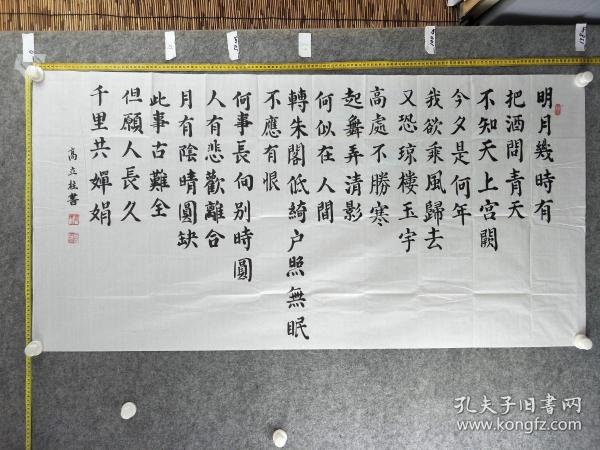 明月幾時有
把酒問青天
不知天上宮闕
今夕是何年
我欲乘風歸去
又恐瓊樓玉宇
高處不勝寒
起舞弄清影
何似在人間
轉朱閣低綺户照無眠
不應有恨
何事長向别時圓
人有悲歡離合
月有陰晴圓缺
此事古難全
但願人長久
千里共嬋娟
高立柱書
孔夫子旧書网
www.kongfz.com